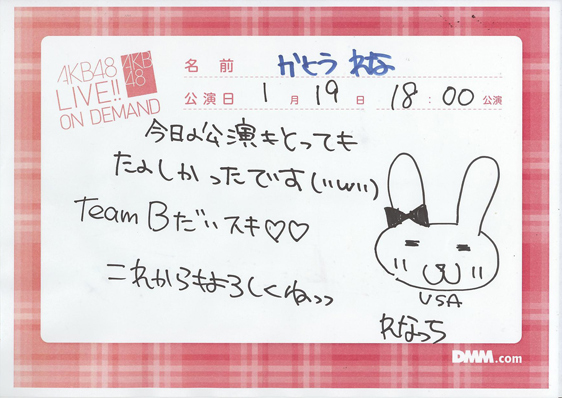 AKB48
LIVE!!
ON DEMAND
AKB
48
名前 かとう れな
公演日 1月19日 18:00公演
今日の公演もとっても
たのしかったです(''w'')
Team Bだいスキ♡♡
これからもよろしくねっっ
USA
れなっち
DMM.com